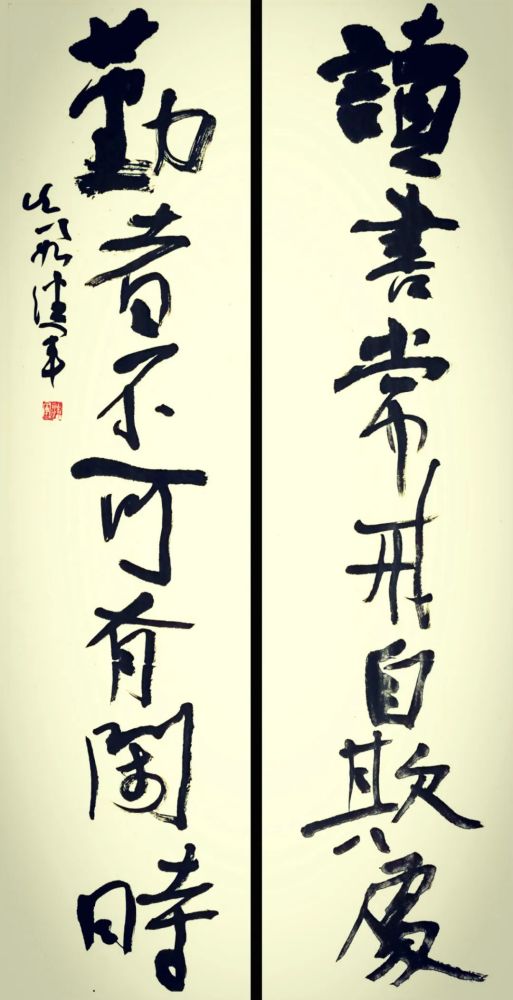 讀書常戒自欺處
勤者不可有閑時